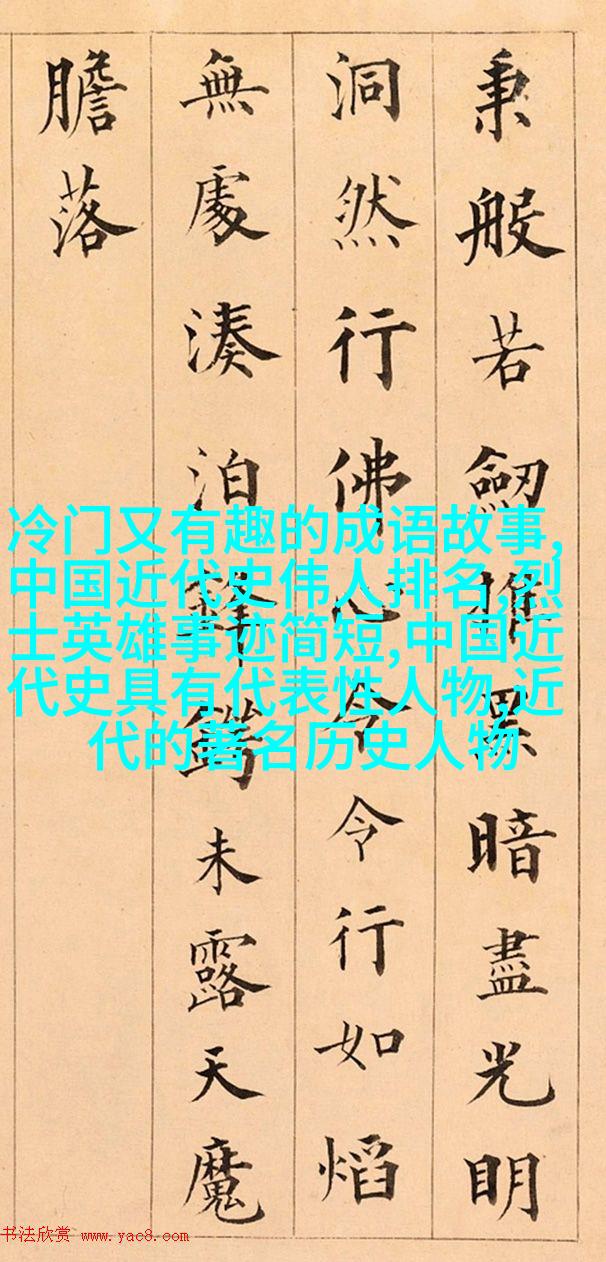 秉般若劒摧暗盡光明
洞然行佛心令令行如熖
無處湊泊鋒鍔未露天魔
膽落
冷门又有趣的成语故事,
中国近代史伟人排名,烈
士英雄事迹简短,中国近
代史具有代表性人物,近
代的著名历史人物
书法欣赏 www.yac8.com